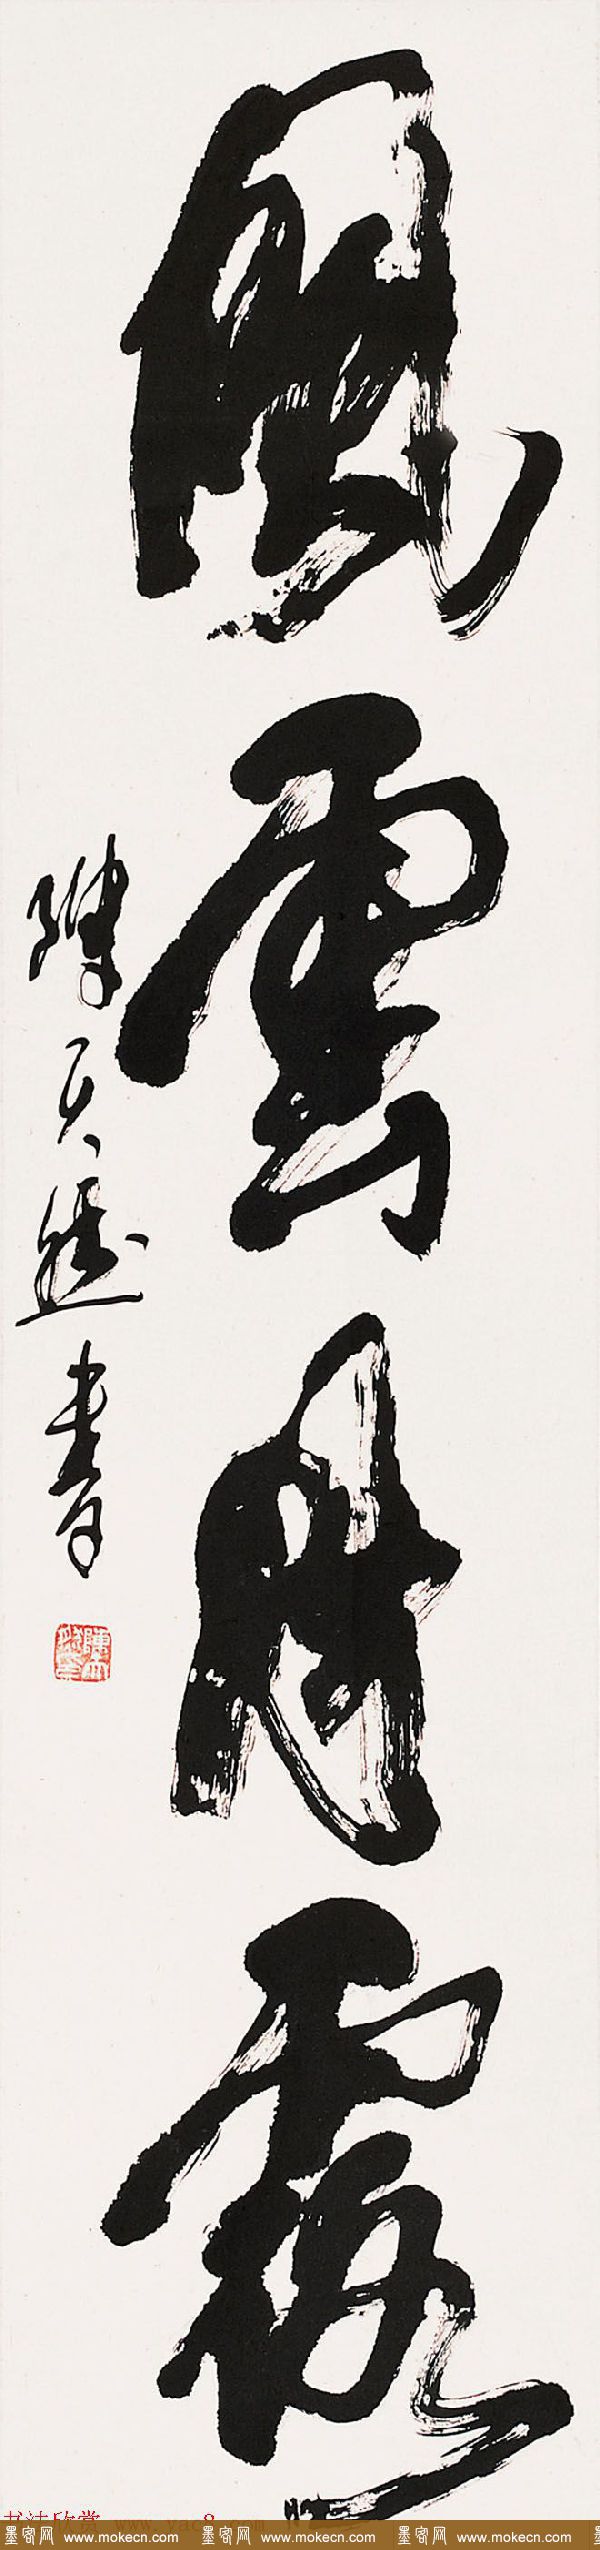 風雲月露
陳天然書
书法欣赏 www.yac8.com
墨客网 www.mokecn.com 墨客网 www.mokecn.com 墨客网 www.mokecn.com